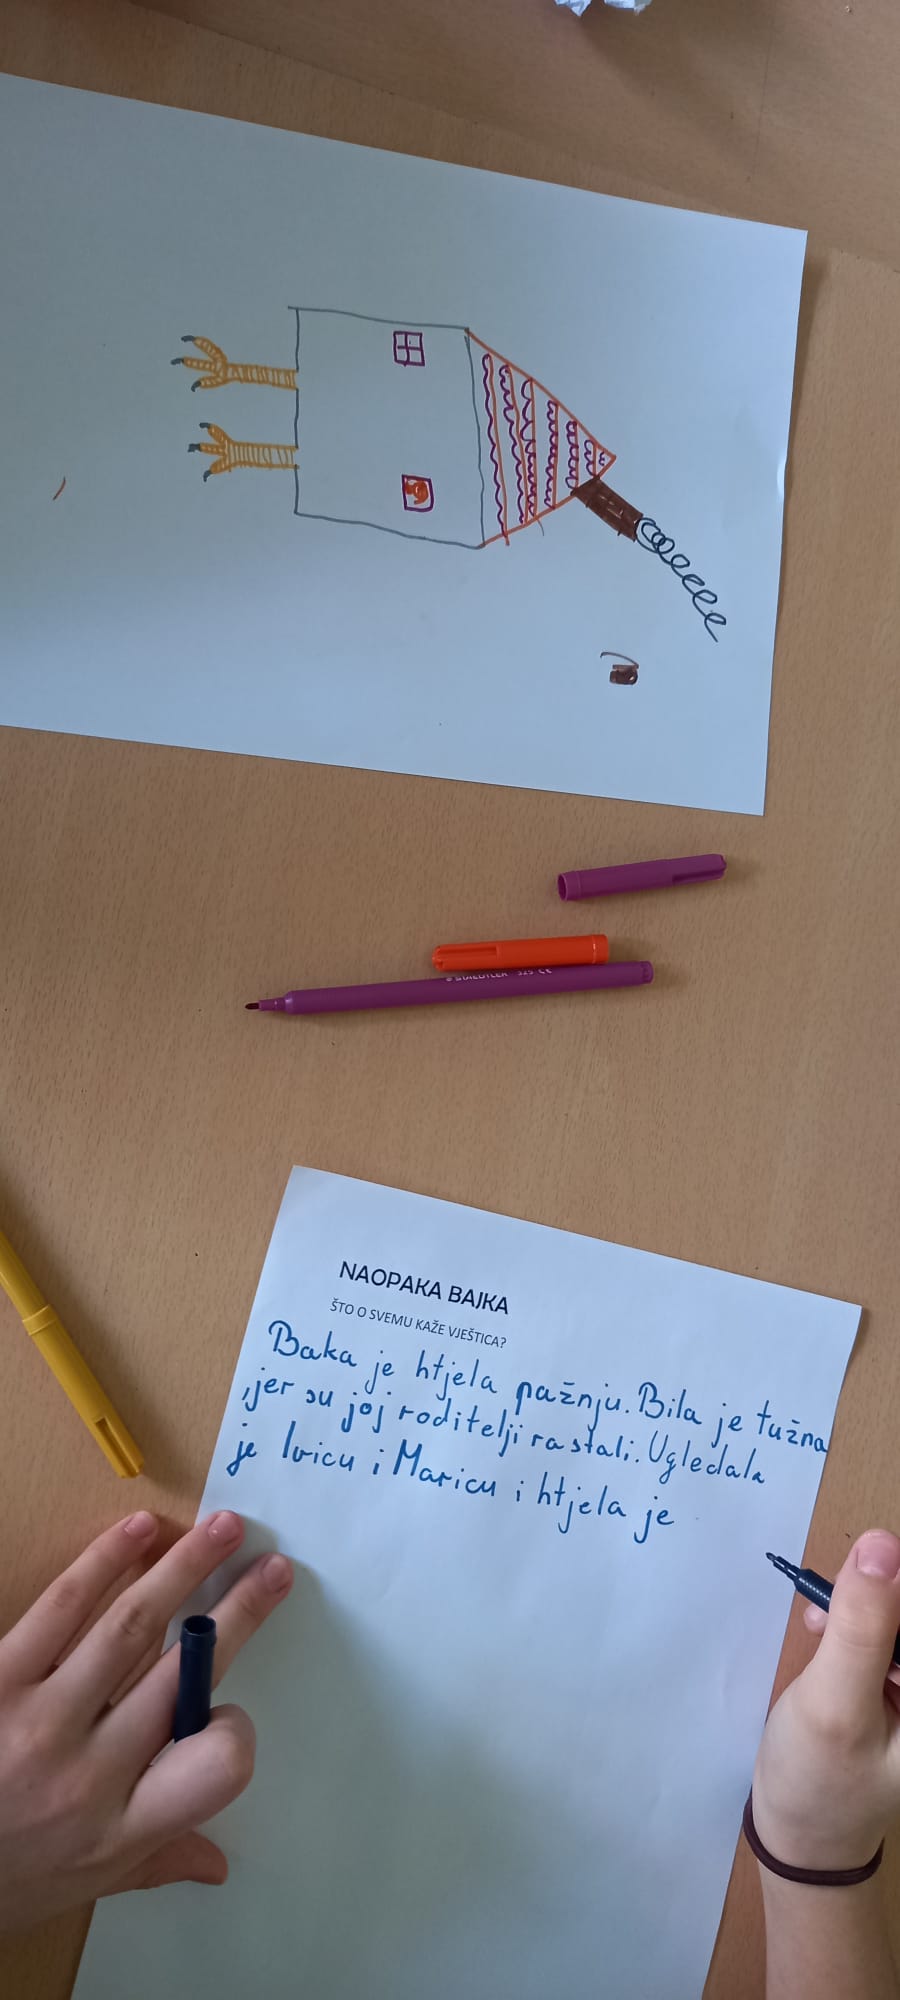 STAEDTLER 325 CE
NAOPAKA BAJKA
ŠTO O SVEMU KAŽE VJEŠTICA?
Baka je htjela pažnju. Bila je tužna
,jer su joj roditelji rastali. Ugledala
je Ivicu i Maricu i htjela je